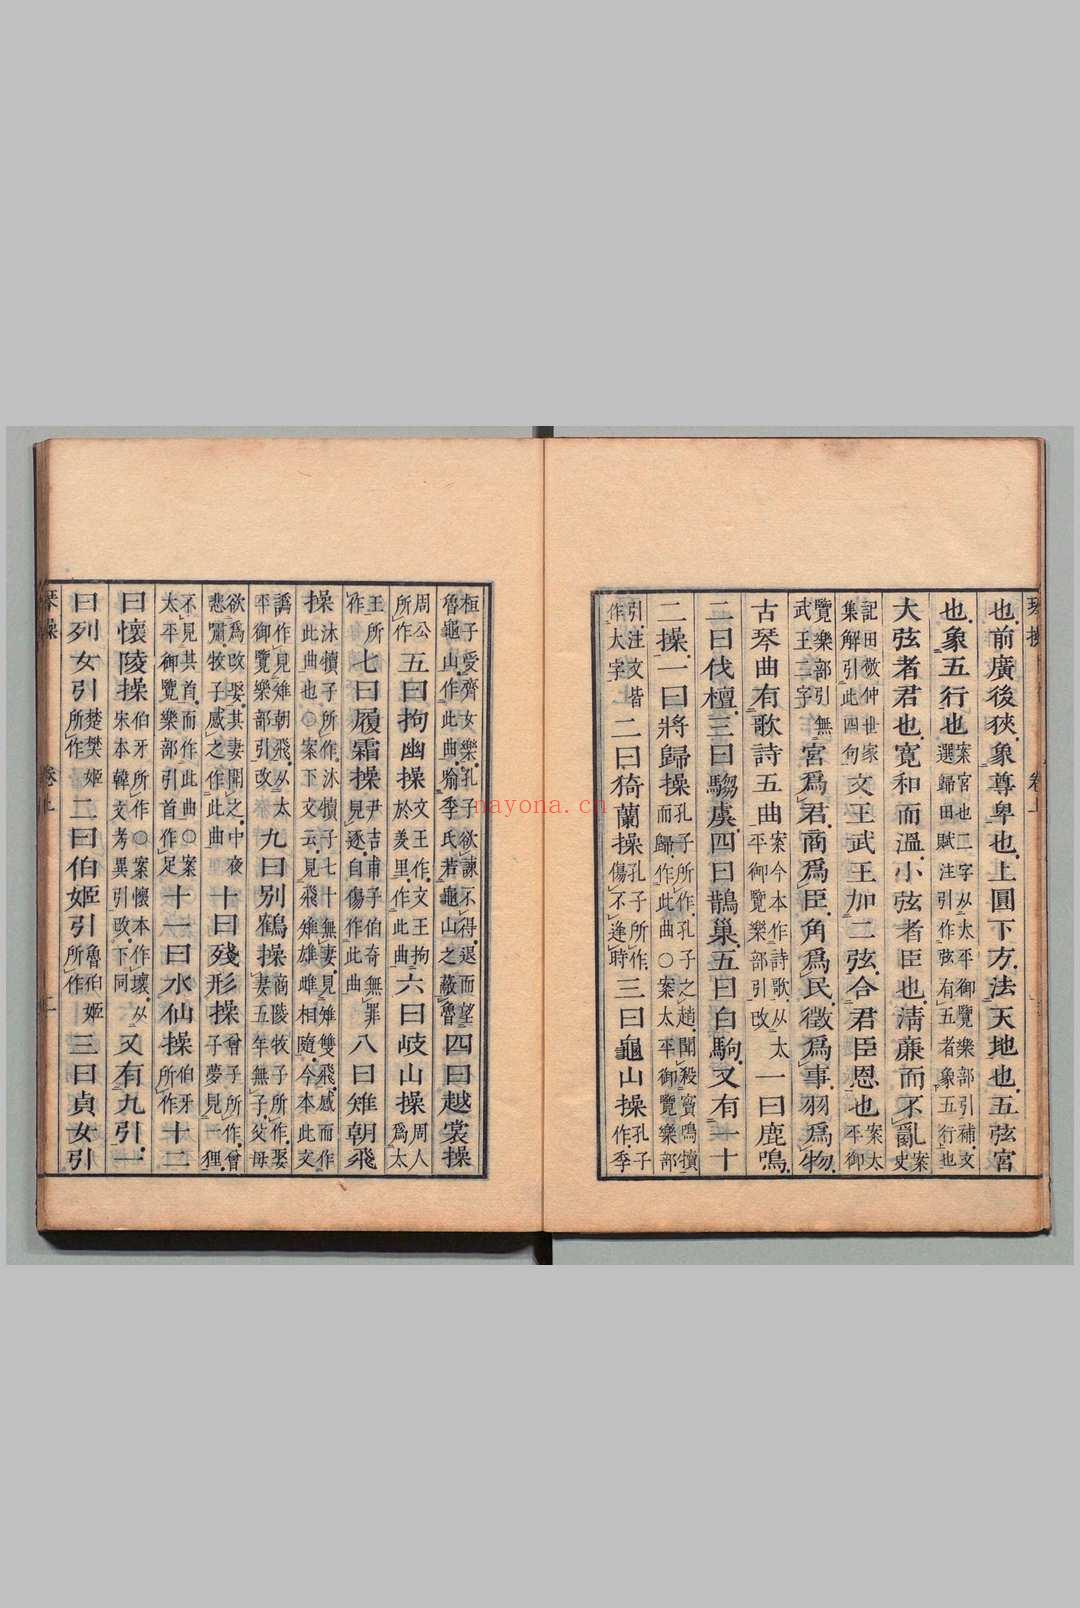 琴操
卷上
也前廣後狹象尊卑也上圓下方法天地也五弦宮
也象五行也案宮也二字从太平御覽樂部引補文選歸田賦注引作弦有五者象五行也
大弦者君也寬和而溫小弦者臣也淸廉而不亂案史
記田敬仲世家集解引此四句文王武王加二弦合君臣恩也案太平御
覽樂部引無武王二字宮爲君商爲臣角爲民徵爲事羽爲物
古琴曲有歌詩五曲案今本作詩歌从太平御覽樂部引改一曰鹿鳴
二曰伐檀三曰騶虞四曰鵲巢五曰白駒又有一十
二操一曰將歸操孔子所作孔子之趙聞殺竇鳴犢而歸作此曲○案太平御覽樂部
引注文皆作大字二曰猗蘭操孔子所作傷不逢時三曰龜山操孔子作季
桓子受齊女樂孔子欲諫不得退而望魯龜山作此曲喻季氏若龜山之蔽魯四曰越裳操
周公所作五曰拘幽操文王作文王拘於羑里作此曲六曰岐山操周人爲太
王所作七曰履霜操尹吉甫子伯奇無罪見逐自傷作此曲八曰雉朝飛
操沐犢子所作沐犢子七十無妻見雉雙飛感而作此曲也○案下文云見飛雉雄雌相隨今本此文
譌作見雉朝飛从太平御覽樂部引改九曰別鶴操商陵牧子所作娶妻五年無子父母
欲爲改娶其妻聞之中夜悲嘯牧子感之作此曲十曰殘形操曾子所作曾子夢見狸
不見其首而作此曲○案太平御覽樂部引首作足十一曰水仙操伯牙所作十二
曰懷陵操伯牙所作○案懷本作壞从宋本韓文考異引改下同又有九引一
曰列女引楚樊姬所作二曰伯姬引魯伯姬所作三曰貞女引
琴操
卷上
二
nayona.cn